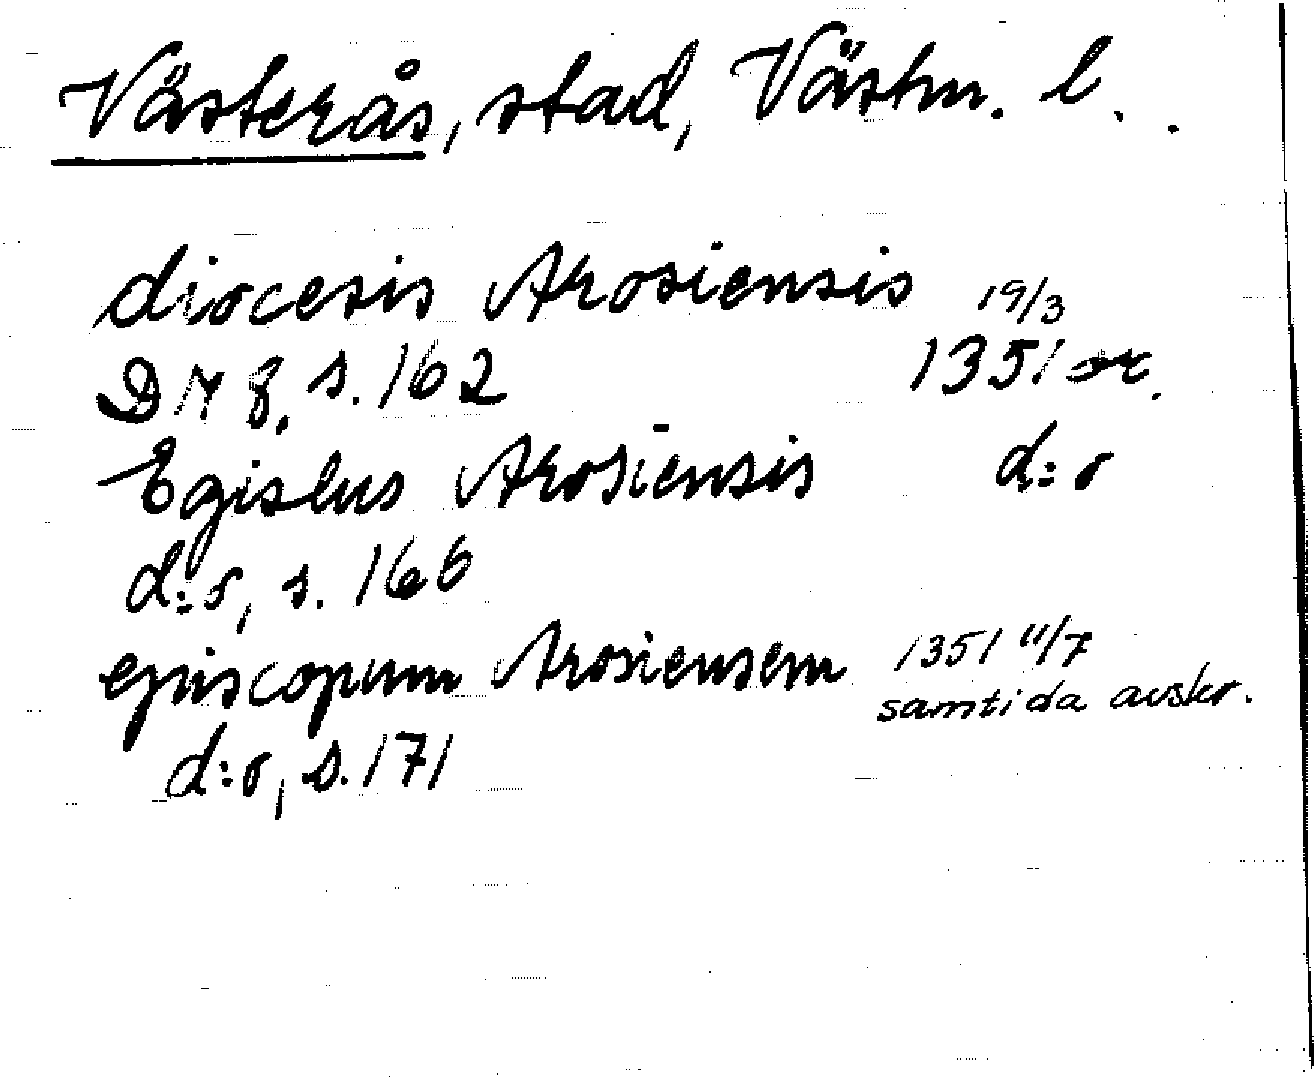 Västerås, stad, Västm. l.
diocesis Arosiensis 19/3
DN 8, s. 162 1351 or.
Egislus Arosiensis d:o
d:o, s. 166
episcopum Arosiensem 1351 11/7
samtida avskr.
d:o, s. 171